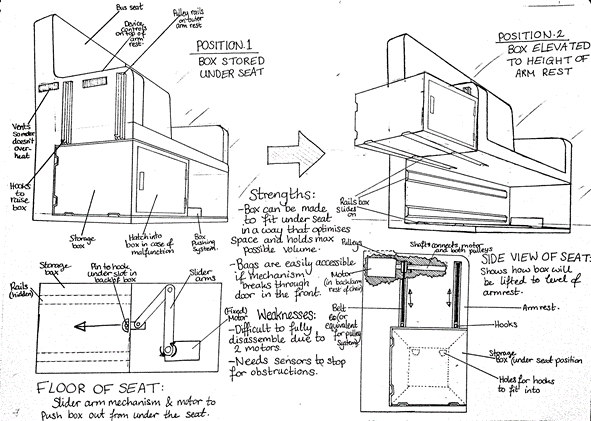 Bus seat
Device
controls
on top of
arm
rest.
Pulley rails
on outer
arm rest
POSITION.1
BOX STORED
UNDER SEAT
Vents
so motor
doesn't
over-
heat
Hooks
to
raise
box
Storage
box
Hatch into
box in case of
malfunction
Box
Pushing
System.
POSITION.2
BOX ELEVATED
TO HEIGHT OF
ARM REST
Rails box
slides
on
Strengths:
-Box can be made
to fit under seat
in a way that optimises
space and holds max
possible volume.
-Bags are easily accessible
if mechanism
breaks through
door in the front.
Weaknesses:
-Difficult to fully
disassemble due to
2 motors.
-Needs sensors to stop
for obstructions.
Storage
box
Rails
(hidden)
Pin to hook
under slot in
back of box
Slider
arms
(Fixed)
Motor
FLOOR OF SEAT:
Slider arm mechanism & motor to
Push box out from under the seat.
Pulleys
Shaft connects motor
and both pulleys
Motor
(in back/arm
rest of chair)
Belt
(or
equivalent
for pulley
system)
SIDE VIEW OF SEAT:
Shows how box will
be lifted to level of
armrest.
Arm rest.
Hooks
Storage
box (under seat position
Holes for hooks
to fit into